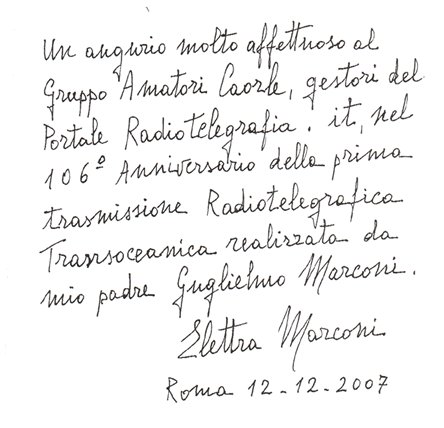 Un augurio molto affettuoso al
Gruppo Amatori Caorle, gestori del
Portale Radiotelegrafia.it, nel
106º Anniversario della prima
trasmissione Radiotelegrafica
Transoceanica realizzata da
mio padre Guglielmo Marconi.
Elettra Marconi
Roma 12-12-2007